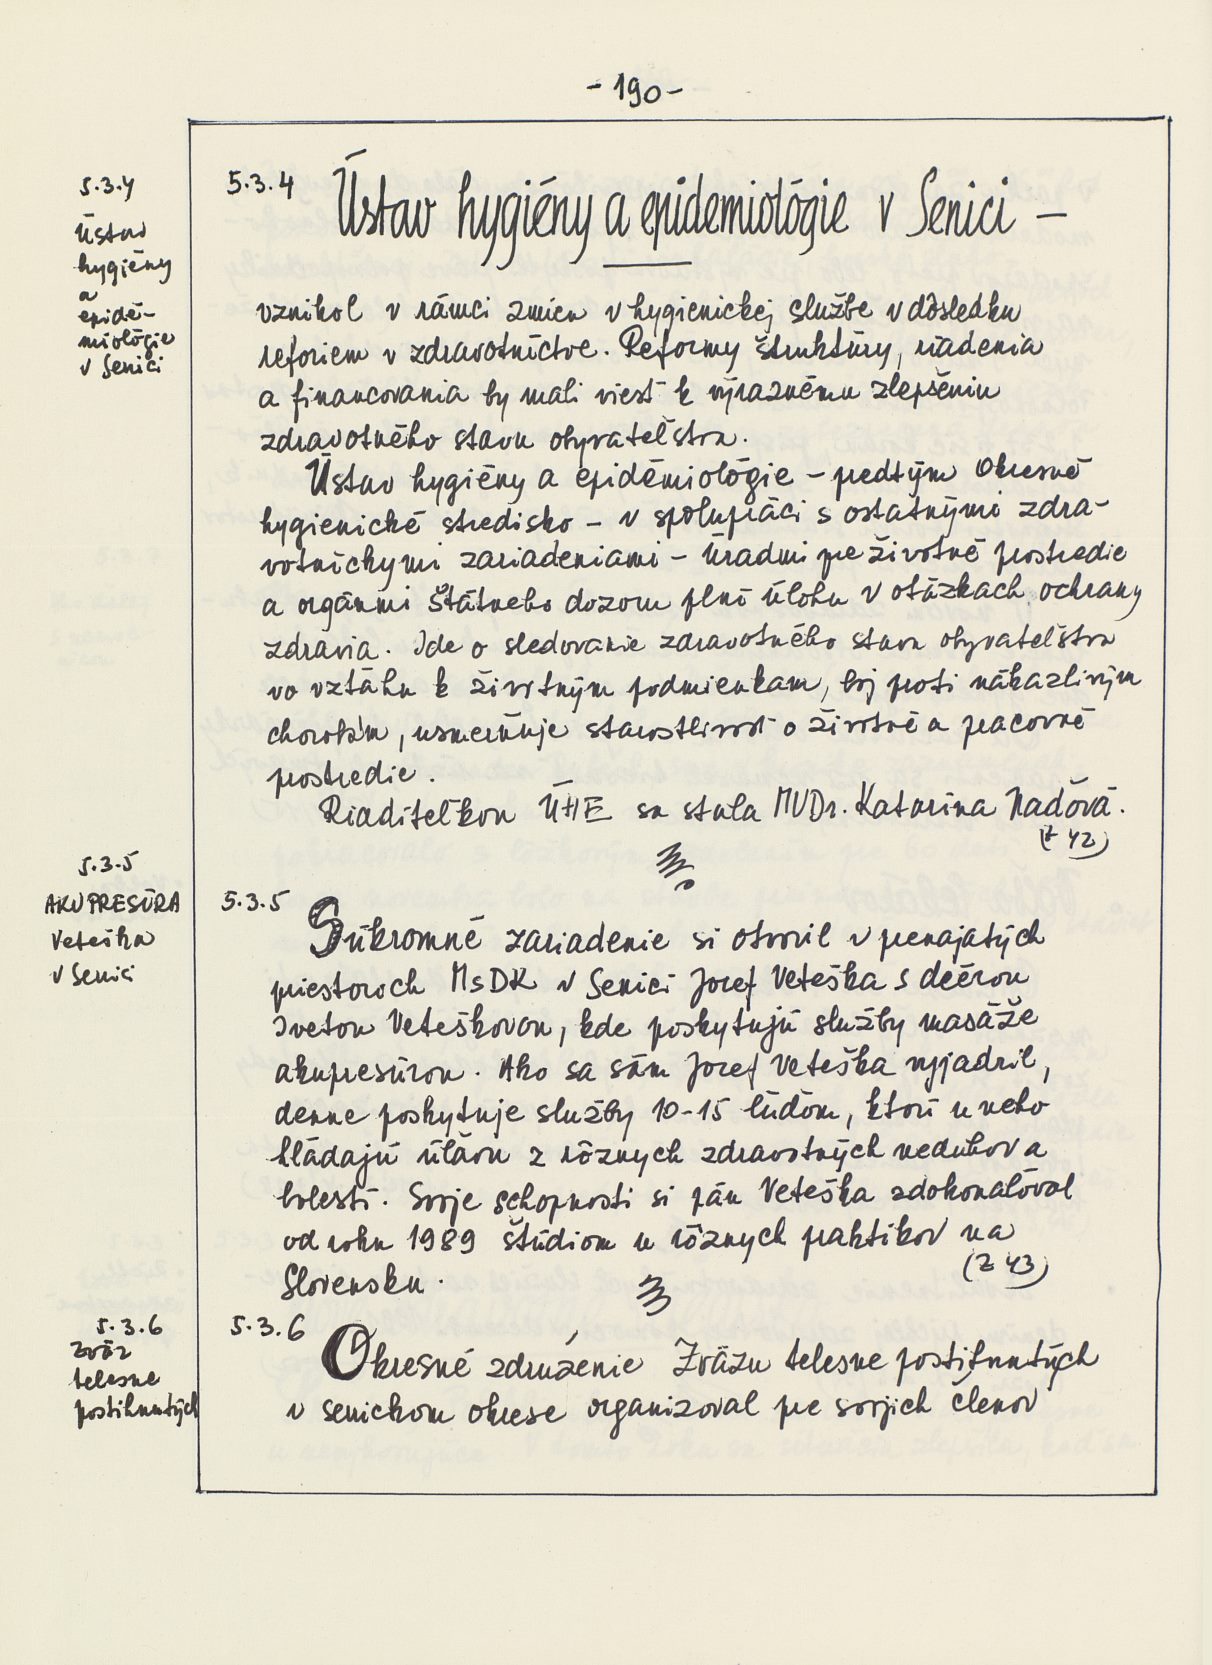 - 190 -
5.3.4
Ústav
hygiény
a
epidé-
miológie
v Senici
5.3.4 Ústav hygiény a epidemiológie v Senici -
vznikol v rámci zmien v hygienickej službe v dôsledku
reforiem v zdravotníctve. Reformy štruktúry, riadenia
a financovania by mali viesť k výraznému zlepšeniu
zdravotného stavu obyvateľstva.
Ústav hygiény a epidémiológie - predtým Okresné
hygienické stredisko - v spolupráci s ostatnými zdra-
votníckymi zariadeniami - Úradmi pre životné prostredie
a orgánmi Štátneho dozoru plní úlohu v otázkach ochrany
zdravia. Ide o sledovanie zdravotného stavu obyvateľstva
vo vzťahu k životným podmienkam, boj proti nákazlivým
chorobám, usmerňuje starostlivosť o životné a pracovné
prostredie.
Riaditeľkou ÚHE sa stala MVDr. Katarína Naďová.
(Z 42)
5.3.5
AKUPRESÚRA
Veteška
v Senici
5.3.5
Súkromné zariadenie si otvoril v prenajatých
priestoroch MsDK v Senici Jozef Veteška s dcérou
Ivetou Veteškovou, kde poskytujú služby masáže
akupresúrou. Ako sa sám Jozef Veteška vyjadril,
denne poskytuje služby 10-15 ľuďom, ktorí u neho
hľadajú úľavu z rôznych zdravotných neduhov a
bolestí. Svoje schopnosti si pán Veteška zdokonaľoval
od roku 1989 štúdiom u rôznych praktikov na
Slovensku. (Z 43)
5.3.6
Zväz
telesne
postihnutých
5.3.6
Okresné združenie Zväzu telesne postihnutých
v senickom okrese organizoval pre svojich členov